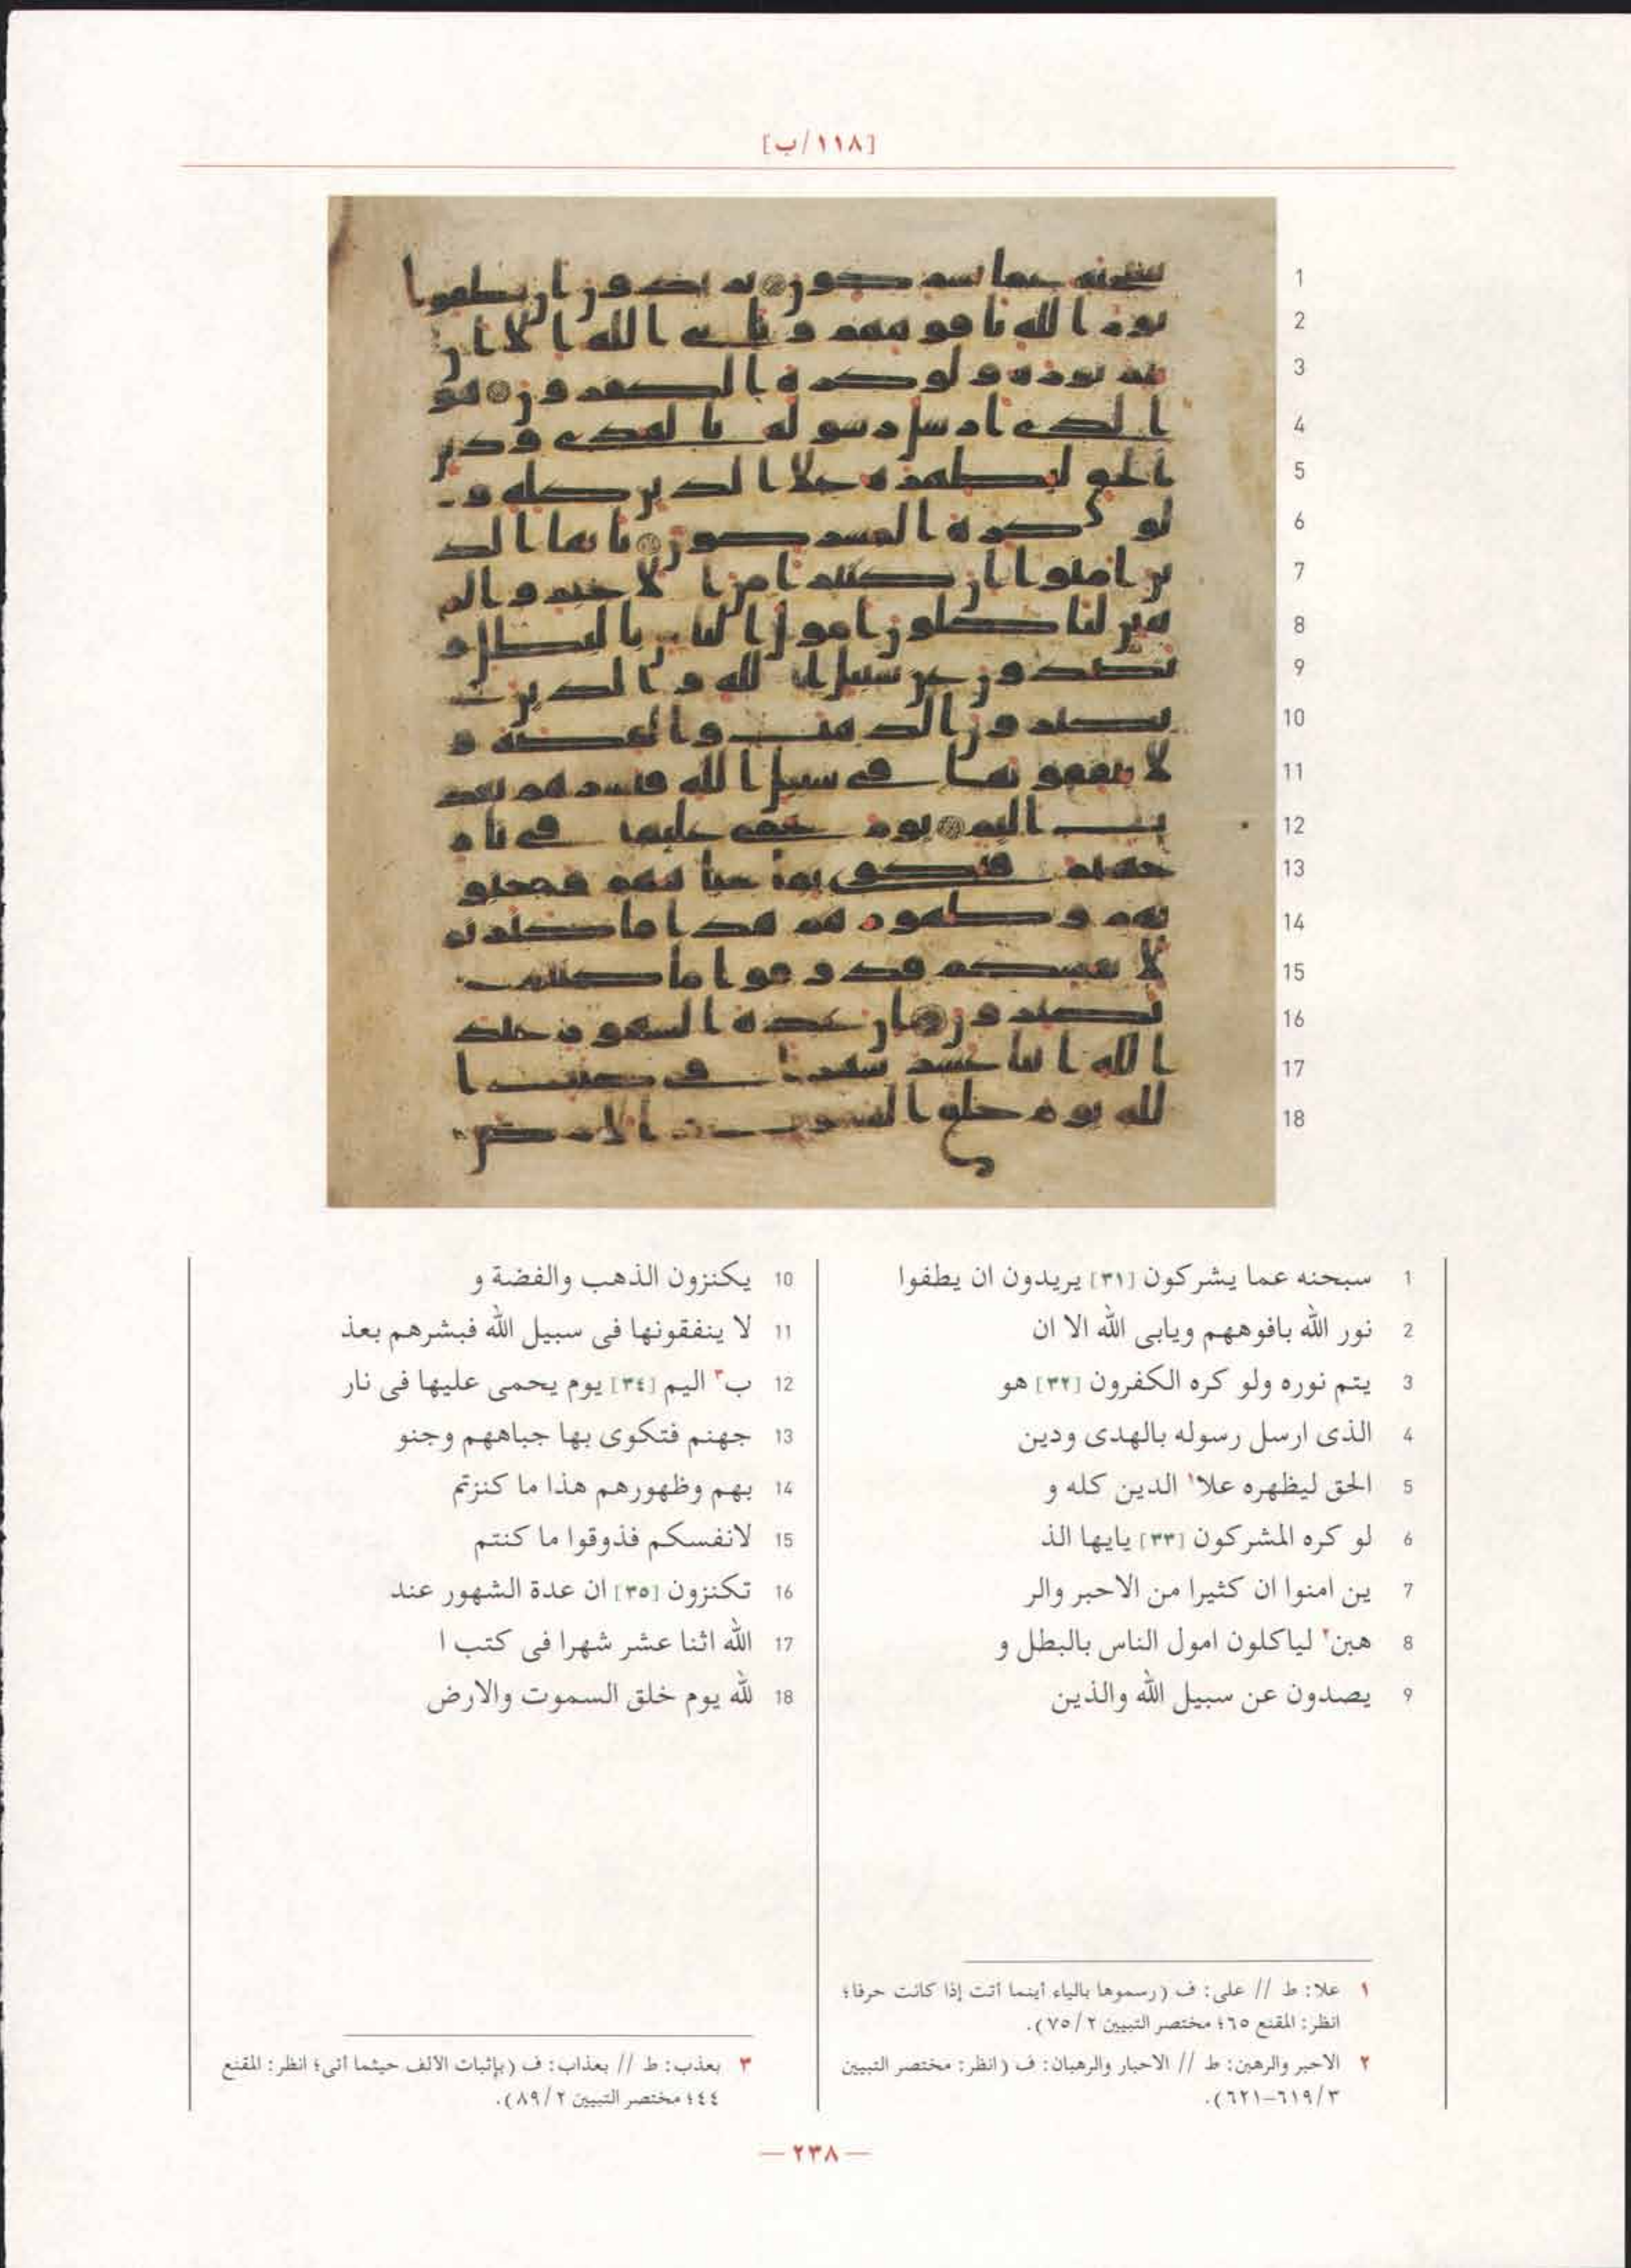 [١١٨/ب]
1 سبحنه عما يشركون [٣١] يريدون ان يطفوا
2 نور الله بافوههم ويابى الله الا ان
3 يتم نوره ولو كره الكفرون [٣٢] هو
4 الذى ارسل رسوله بالهدى ودين
5 الحق ليظهره علا١ الدين كله و
6 لو كره المشركون [٣٣] يايها الذ
7 ين امنوا ان كثيرا من الاحبر والر
8 هبن٢ لياكلون امول الناس بالبطل و
9 يصدون عن سبيل الله والذين
10 يكنزون الذهب والفضة و
11 لا ينفقونها فى سبيل الله فبشرهم بعذ
12 ب٣ اليم [٣٤] يوم يحمى عليها فى نار
13 جهنم فتكوى بها جباههم وجنو
14 بهم وظهورهم هذا ما كنزتم
15 لانفسكم فذوقوا ما كنتم
16 تكنزون [٣٥] ان عدة الشهور عند
17 الله اثنا عشر شهرا فى كتب ا
18 لله يوم خلق السموت والارض
١ علا: ط // على: ف (رسموها بالياء أينما أتت إذا كانت حرفا؛
انظر: المقنع ٦٥؛ مختصر التبيين ٢/٧٥).
٢ الاحبر والرهبن: ط // الاحبار والرهبان: ف (انظر: مختصر التبيين
٣/٦١٩-٦٢١).
٣ بعذب: ط // بعذاب: ف (بإثبات الألف حيثما أتى؛ انظر: المقنع
٤٤؛ مختصر التبيين ٢/٨٩).
— ٢٣٨ —